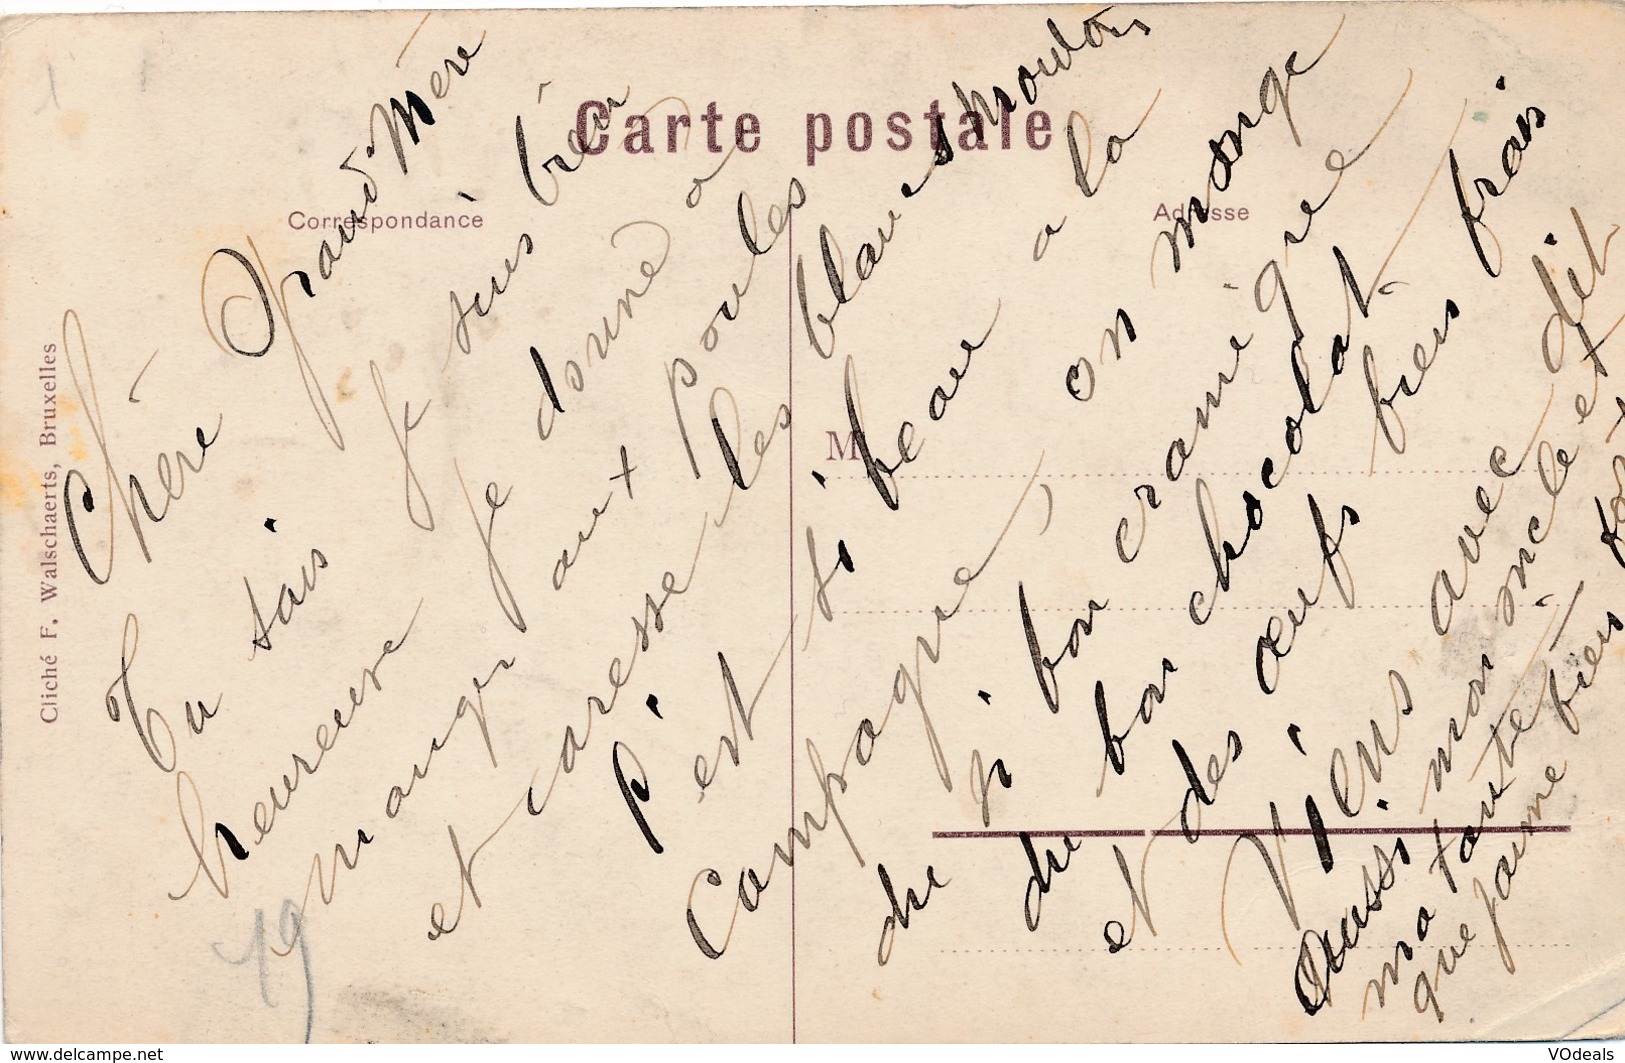 Carte postale
Correspondance
Adresse
M
Cliché F. Walschaerts, Bruxelles
Chère Grand'Mère
Tu sais je suis bien
heureuse je donne à
manger aux poules
et caresse les blancs moutons
C'est si beau a la
Campagne, on mange
du si bon cramique
du bon chocolat
et des œufs bien frais
Viens avec
aussi mon oncle et
ma tante
que j'aime bien
19
www.delcampe.net
VOdeals